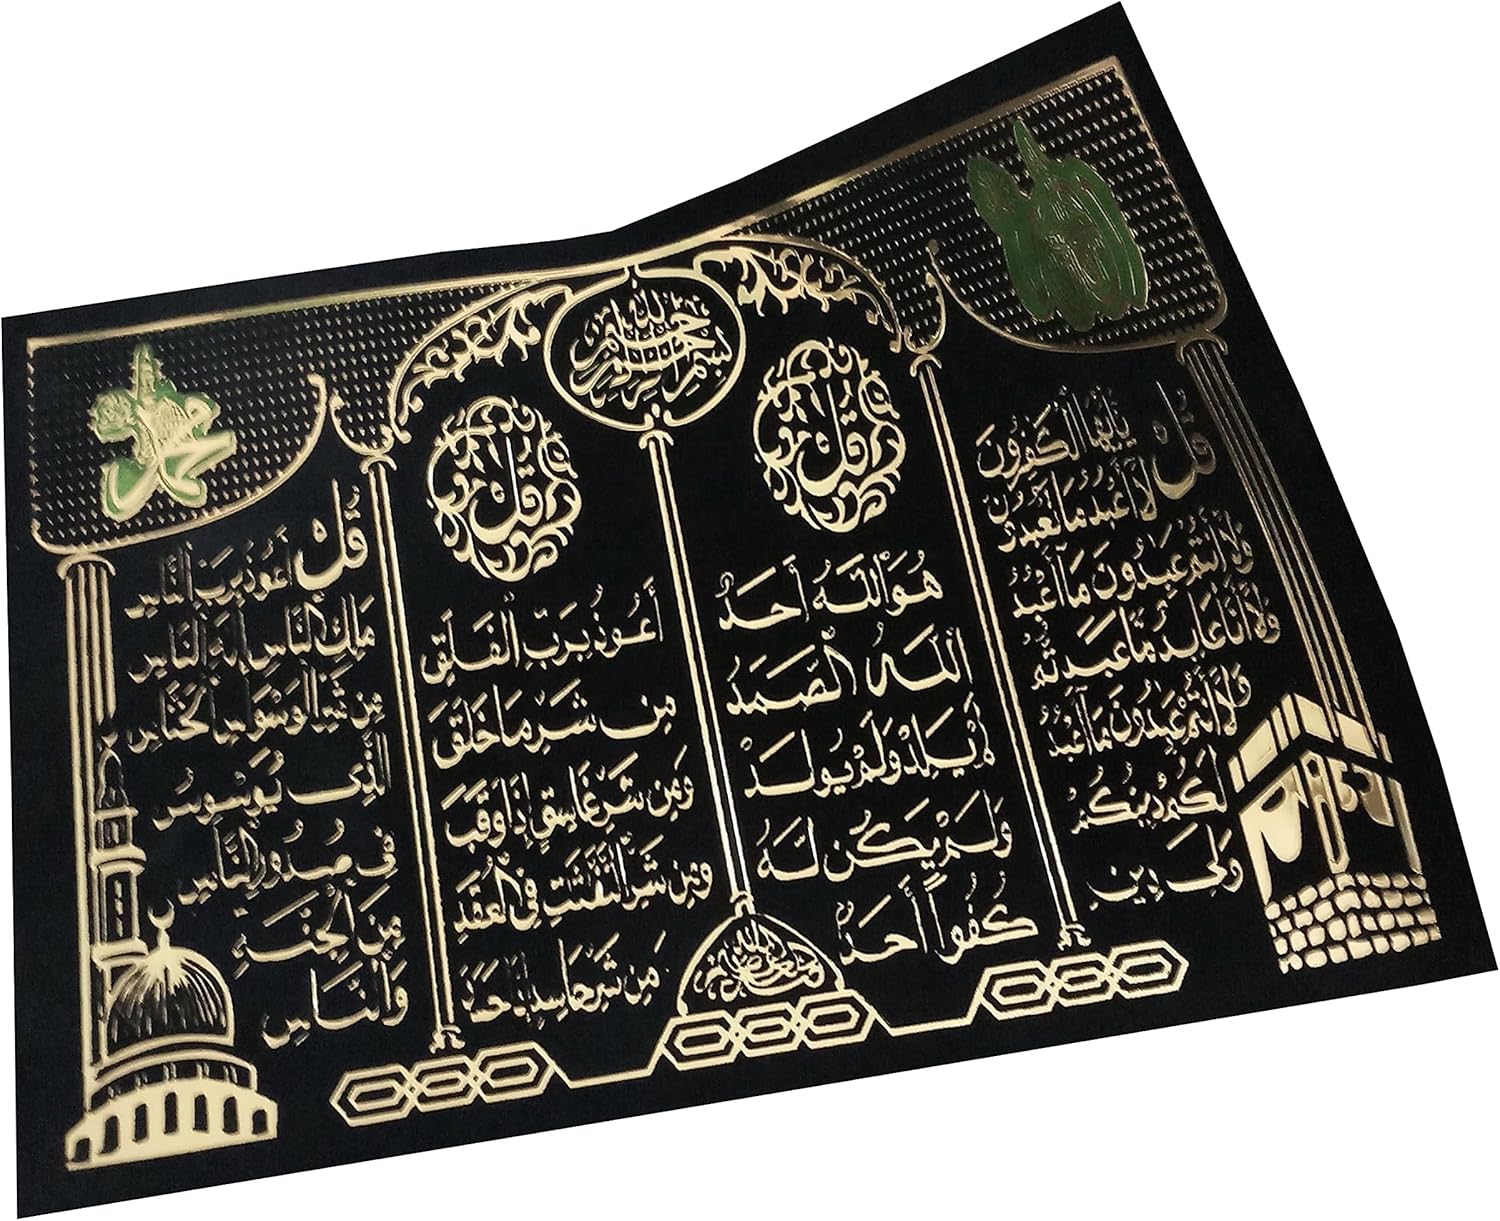 بسم الله الرحمن الرحيم
قُلْ يٰٓأَيُّهَا الْكٰفِرُونَ
لَآ أَعْبُدُ مَا تَعْبُدُونَ
وَلَآ أَنْتُمْ عٰبِدُونَ مَآ أَعْبُدُ
وَلَآ أَنَا عَابِدٌ مَّا عَبَدتُّمْ
وَلَآ أَنْتُمْ عٰبِدُونَ مَآ أَعْبُدُ
لَكُمْ دِينُكُمْ
وَلِىَ دِينِ
قُلْ
هُوَ اللَّهُ أَحَدٌ
اللَّهُ الصَّمَدُ
لَمْ يَلِدْ وَلَمْ يُولَدْ
وَلَمْ يَكُن لَّهُ
كُفُوًا أَحَدٌ
قُلْ
أَعُوذُ بِرَبِّ الْفَلَقِ
مِن شَرِّ مَا خَلَقَ
وَمِن شَرِّ غَاسِقٍ إِذَا وَقَبَ
وَمِن شَرِّ النَّفّٰثٰتِ فِى الْعُقَدِ
مِن شَرِّ حَاسِدٍ إِذَا حَسَدَ
محمد
قُلْ أَعُوذُ بِرَبِّ النَّاسِ
مَلِكِ النَّاسِ إِلٰهِ النَّاسِ
مِن شَرِّ الْوَسْوَاسِ الْخَنَّاسِ
الَّذِى يُوَسْوِسُ
فِى صُدُورِ النَّاسِ
مِنَ الْجِنَّةِ
وَالنَّاسِ